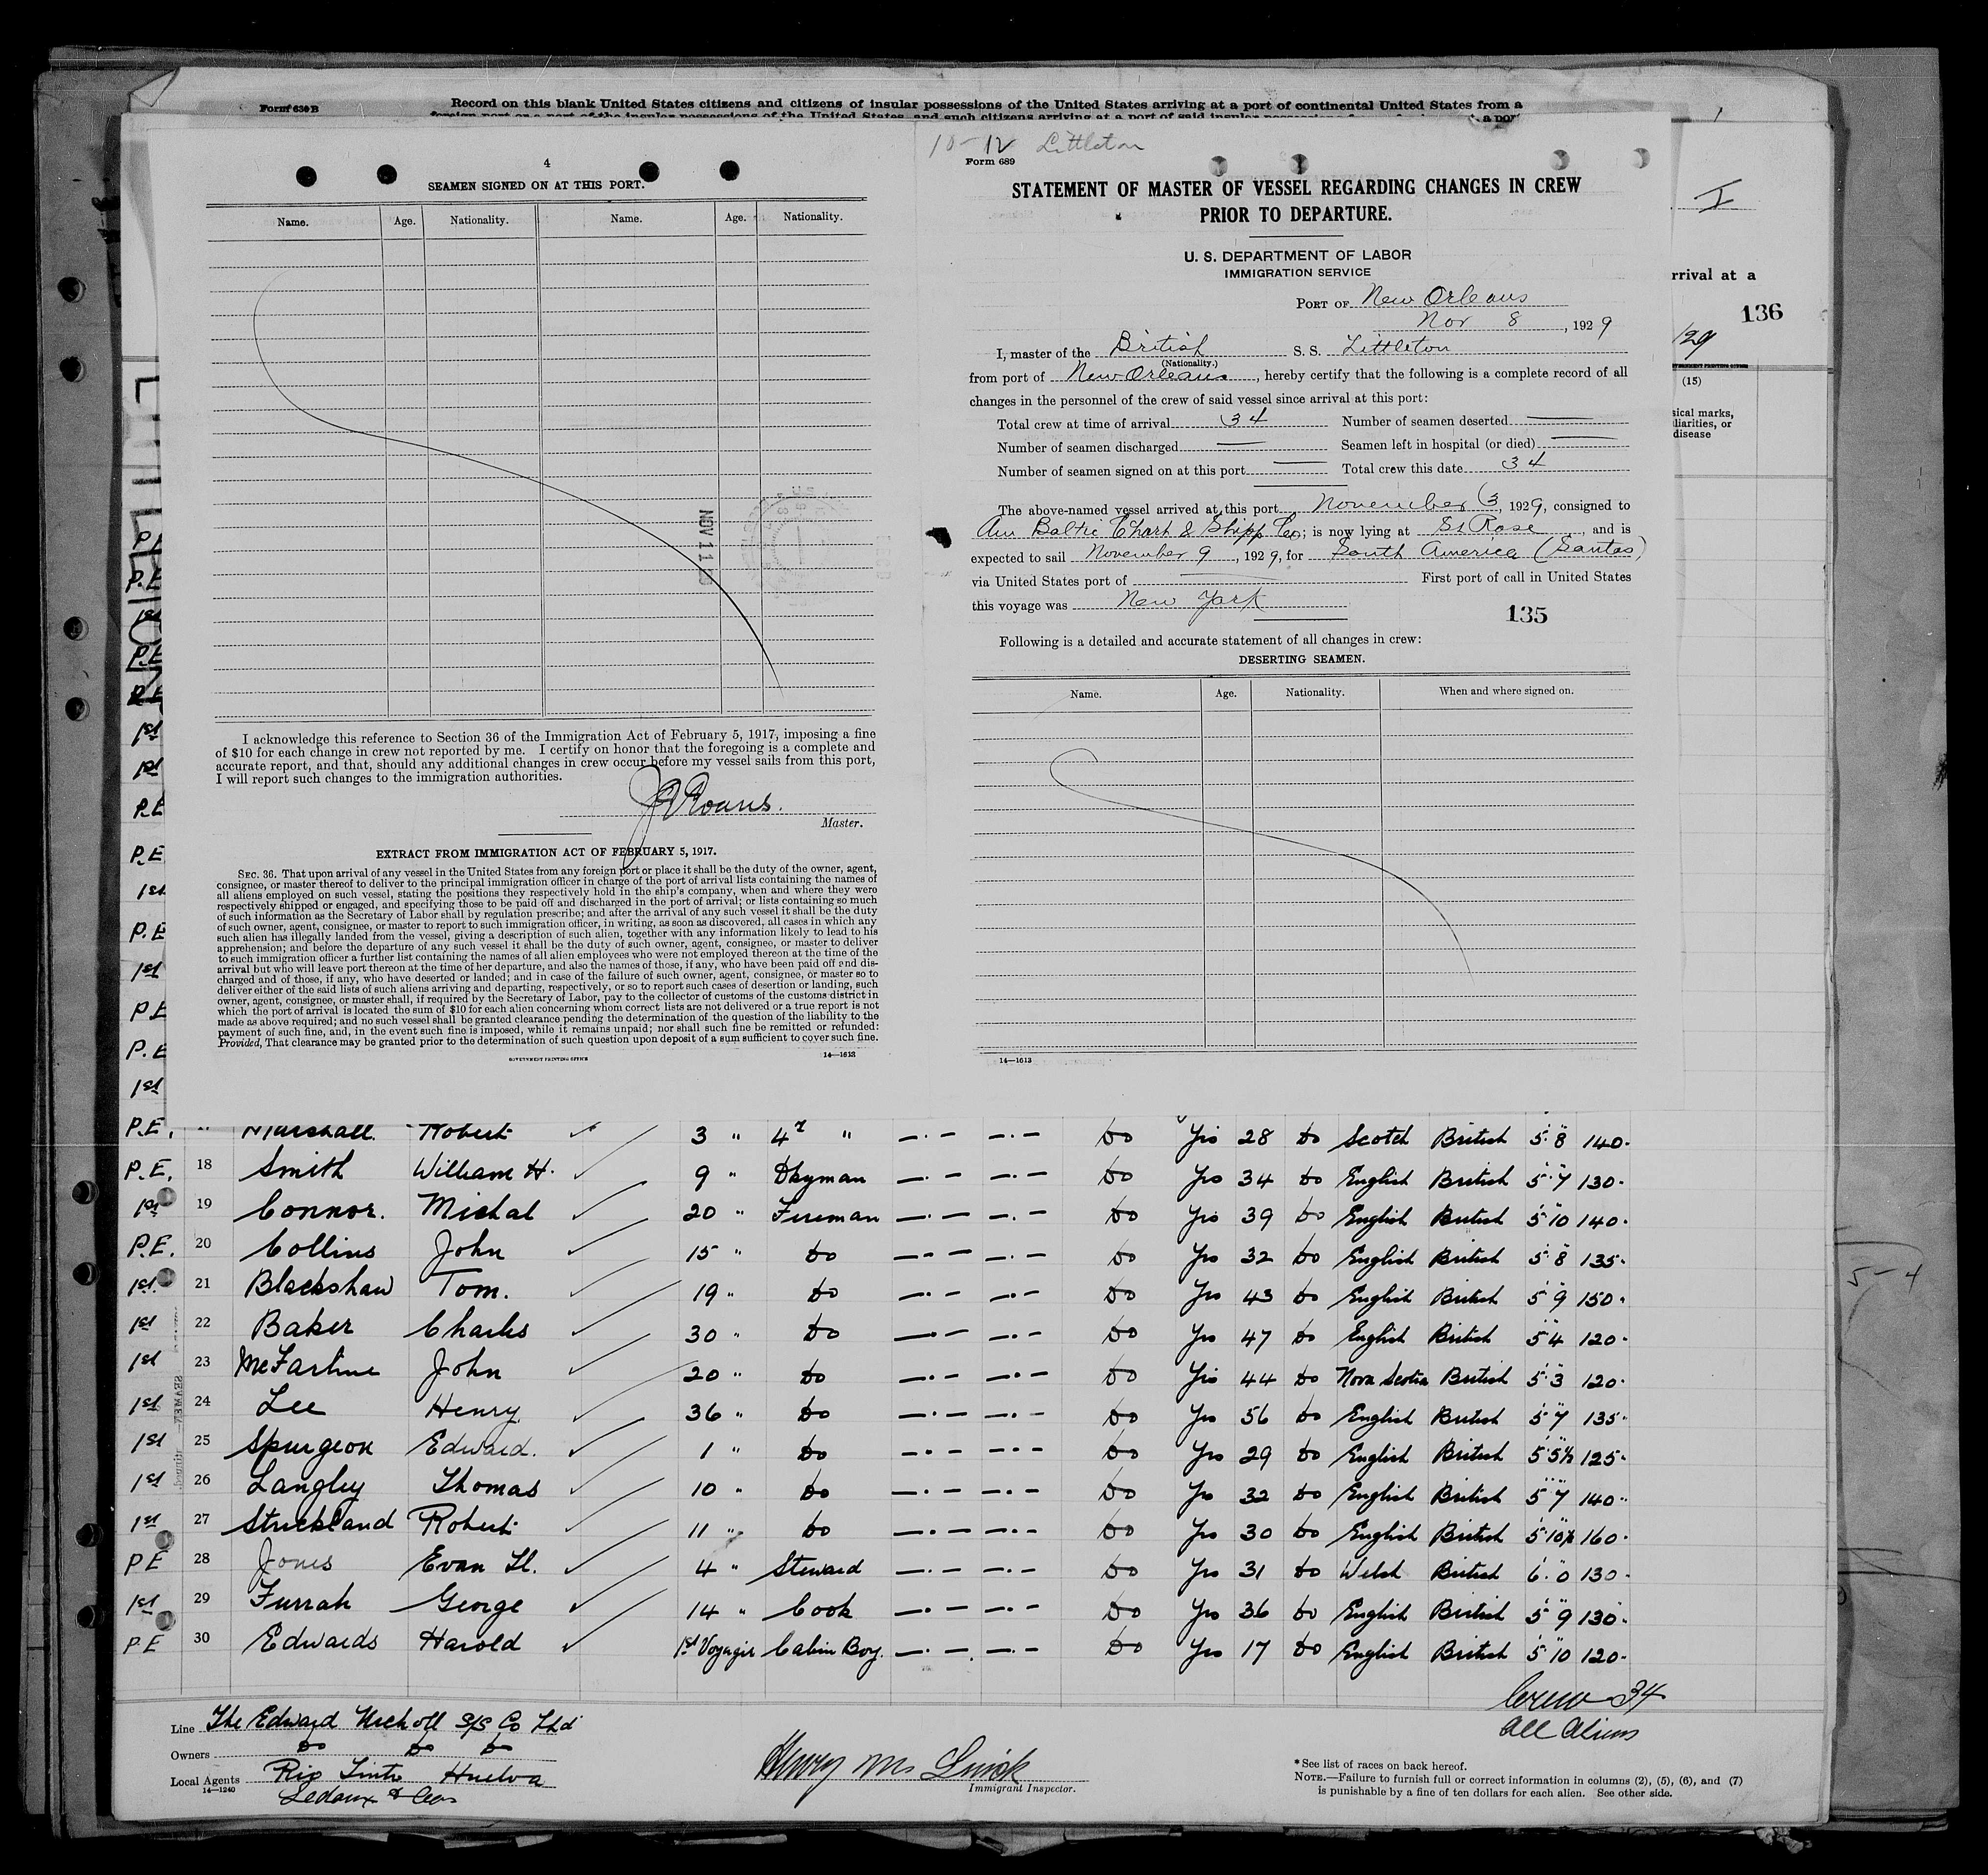 Form 630 B
Record on this blank United States citizens and citizens of insular possessions of the United States arriving at a port of continental United States from a
foreign port or a port of the insular possessions of the United States, and such citizens arriving at a port of said insular possessions
4
SEAMEN SIGNED ON AT THIS PORT.
Name. Age. Nationality. Name. Age. Nationality.
NOV 11
I acknowledge this reference to Section 36 of the Immigration Act of February 5, 1917, imposing a fine
of $10 for each change in crew not reported by me. I certify on honor that the foregoing is a complete and
accurate report, and that, should any additional changes in crew occur before my vessel sails from this port,
I will report such changes to the immigration authorities.
Evans.
Master.
EXTRACT FROM IMMIGRATION ACT OF FEBRUARY 5, 1917.
SEC. 36. That upon arrival of any vessel in the United States from any foreign port or place it shall be the duty of the owner, agent,
consignee, or master thereof to deliver to the principal immigration officer in charge of the port of arrival lists containing the names of
all aliens employed on such vessel, stating the positions they respectively hold in the ship's company, when and where they were
respectively shipped or engaged, and specifying those to be paid off and discharged in the port of arrival; or lists containing so much
of such information as the Secretary of Labor shall by regulation prescribe; and after the arrival of any such vessel it shall be the duty
of such owner, agent, consignee, or master to report to such immigration officer, in writing, as soon as discovered, all cases in which any
such alien has illegally landed from the vessel, giving a description of such alien, together with any information likely to lead to his
apprehension; and before the departure of any such vessel it shall be the duty of such owner, agent, consignee, or master to deliver
to such immigration officer a further list containing the names of all alien employees who were not employed thereon at the time of the
arrival but who will leave port thereon at the time of her departure, and also the names of those, if any, who have been paid off and dis-
charged and of those, if any, who have deserted or landed; and in case of the failure of such owner, agent, consignee, or master so to
deliver either of the said lists of such aliens arriving and departing, respectively, or so to report such cases of desertion or landing, such
owner, agent, consignee, or master shall, if required by the Secretary of Labor, pay to the collector of customs of the customs district in
which the port of arrival is located the sum of $10 for each alien concerning whom correct lists are not delivered or a true report is not
made as above required; and no such vessel shall be granted clearance pending the determination of the question of the liability to the
payment of such fine, and, in the event such fine is imposed, while it remains unpaid; nor shall such fine be remitted or refunded:
Provided, That clearance may be granted prior to the determination of such question upon deposit of a sum sufficient to cover such fine.
GOVERNMENT PRINTING OFFICE 14—1613
10-12 Littleton
Form 689
STATEMENT OF MASTER OF VESSEL REGARDING CHANGES IN CREW
PRIOR TO DEPARTURE.
U. S. DEPARTMENT OF LABOR
IMMIGRATION SERVICE
PORT OF New Orleans
Nov 8, 1929
I, master of the British S. S. Littleton
(Nationality.)
from port of New Orleans, hereby certify that the following is a complete record of all
changes in the personnel of the crew of said vessel since arrival at this port:
Total crew at time of arrival 34 Number of seamen deserted —
Number of seamen discharged — Seamen left in hospital (or died) —
Number of seamen signed on at this port — Total crew this date 34
The above-named vessel arrived at this port November 3, 1929, consigned to
Am Baltic Chart & Shipp Co; is now lying at St Rose, and is
expected to sail November 9, 1929, for South America (Santos)
via United States port of — First port of call in United States
this voyage was New York
135
Following is a detailed and accurate statement of all changes in crew:
DESERTING SEAMEN.
Name. Age. Nationality. When and where signed on.
14—1613
I
rrival at a
136
/29
(15)
sical marks,
liarities, or
disease
P.E. Marshall. Robert 3 " 4th " Do Yes 28 Do Scotch British 5' 8" 140.
P.E. 18 Smith William H. 9 " Dkyman Do Yes 34 Do English British 5' 7" 130.
1st 19 Connor. Michal 20 " Fireman Do Yes 39 Do English British 5' 10" 140.
P.E. 20 Collins John 15 " Do Do Yes 32 Do English British 5' 8" 135.
1st 21 Blackshaw Tom. 19 " Do Do Yes 43 Do English British 5' 9" 150.
1st 22 Baker Charles 30 " Do Do Yes 47 Do English British 5' 4" 120.
1st 23 McFarline John 20 " Do Do Yes 44 Do Nova Scotia British 5' 3" 120.
1st 24 Lee Henry 36 " Do Do Yes 56 Do English British 5' 7" 135.
1st 25 Spurgeon Edward. 1 " Do Do Yes 29 Do English British 5' 5½" 125.
1st 26 Langley Thomas 10 " Do Do Yes 32 Do English British 5' 7" 140.
1st 27 Strickland Robert 11 " Do Do Yes 30 Do English British 5' 10½" 160.
PE 28 Jones Evan Ll. 4 " Steward Do Yes 31 Do Welsh British 6' 0 130.
1st 29 Furrah George 14 " Cook Do Yes 36 Do English British 5' 9" 130.
PE 30 Edwards Harold 1st Voyage Cabin Boy. Do Yes 17 Do English British 5' 10" 120.
Crew 34
All Aliens
Line The Edward Nicholl S/S Co Ltd
Owners Do Do Do
Local Agents Rio Tinto Huelva
14—1240
Henry
Immigrant Inspector.
* See list of races on back hereof.
NOTE.—Failure to furnish full or correct information in columns (2), (5), (6), and (7)
is punishable by a fine of ten dollars for each alien. See other side.
5-4